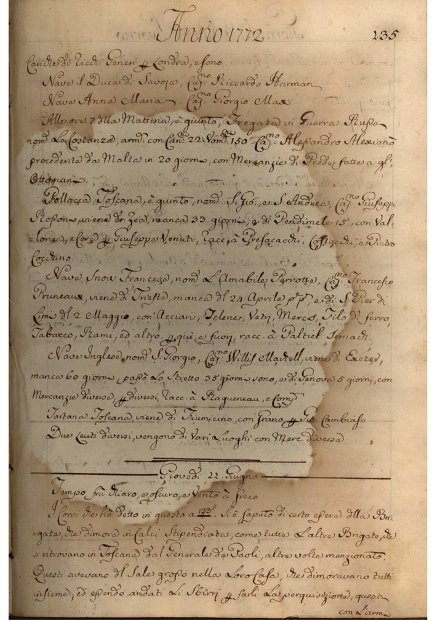 Anno 1772
135
Londra, e sono
Nave il Duca di Savoia, Cap.no Riccardo Harman
Nave Anna Maria Cap.no Giorgio Max
Alle ore 7 della Mattina, è giunta, Fregata in Guerra Russa
nom.ta La Costanza, arm.ta con Can.ni 22. Uom.ni 150. Cap.no Alesandro Alexiano
procedente da Malta in 20 giorni, con Mercanzie di Prede fatte a gl'
Ottomani
Pollacca Toscana, è giunta, nom.ta S. Gio: e S. Andrea, Cap.no Giuseppe
viene da Zea, manca 33 giorni, e di 15, con Val
lonea, Giuseppe Venuti,
Nave Snow Francese, nom.ta L'Amabile Cap.no Francesco
Pruneaux, viene di Trieste, manca dal 24 Aprile p.to, e di S. Pier di
2 Maggio, con Acciari, Telerie, Vetri, Merci, Filo di ferro
Tabacco, Rami, ed altro qui, e fuori, racc. à
Nave Inglese nom.ta S. Giorgio, Cap.no viene di Exeter,
manca 60 giorni, passò Lo Stretto 35 giorni sono, e di Genova 5 giorni, con
Mercanzie diverse diversi, racc. à e Comp.
Tartana Toscana, viene di Fiumicino, con grano Cambiaso
Due Leuti diversi, vengono da Vari Luoghi con Merc. diverse
Giovedì 22 Giugno
Tempo frà chiaro, e scuro, e Vento à fresco
I Corsi che hò detto in questo a 132. si è saputo di certo essere della Bri
gata, che dimora in Calci Stipendiata, come tutte L'altre Brigate, che
si ritrovano in Toscana dal Generale de Paoli, altre volte menzionato
Questi avevano del Sale grosso nella Loro Casa, che dimoravano tutti
insieme, ed essendo andati Li Sbirri farli La perquisizione, questi
con L'arm